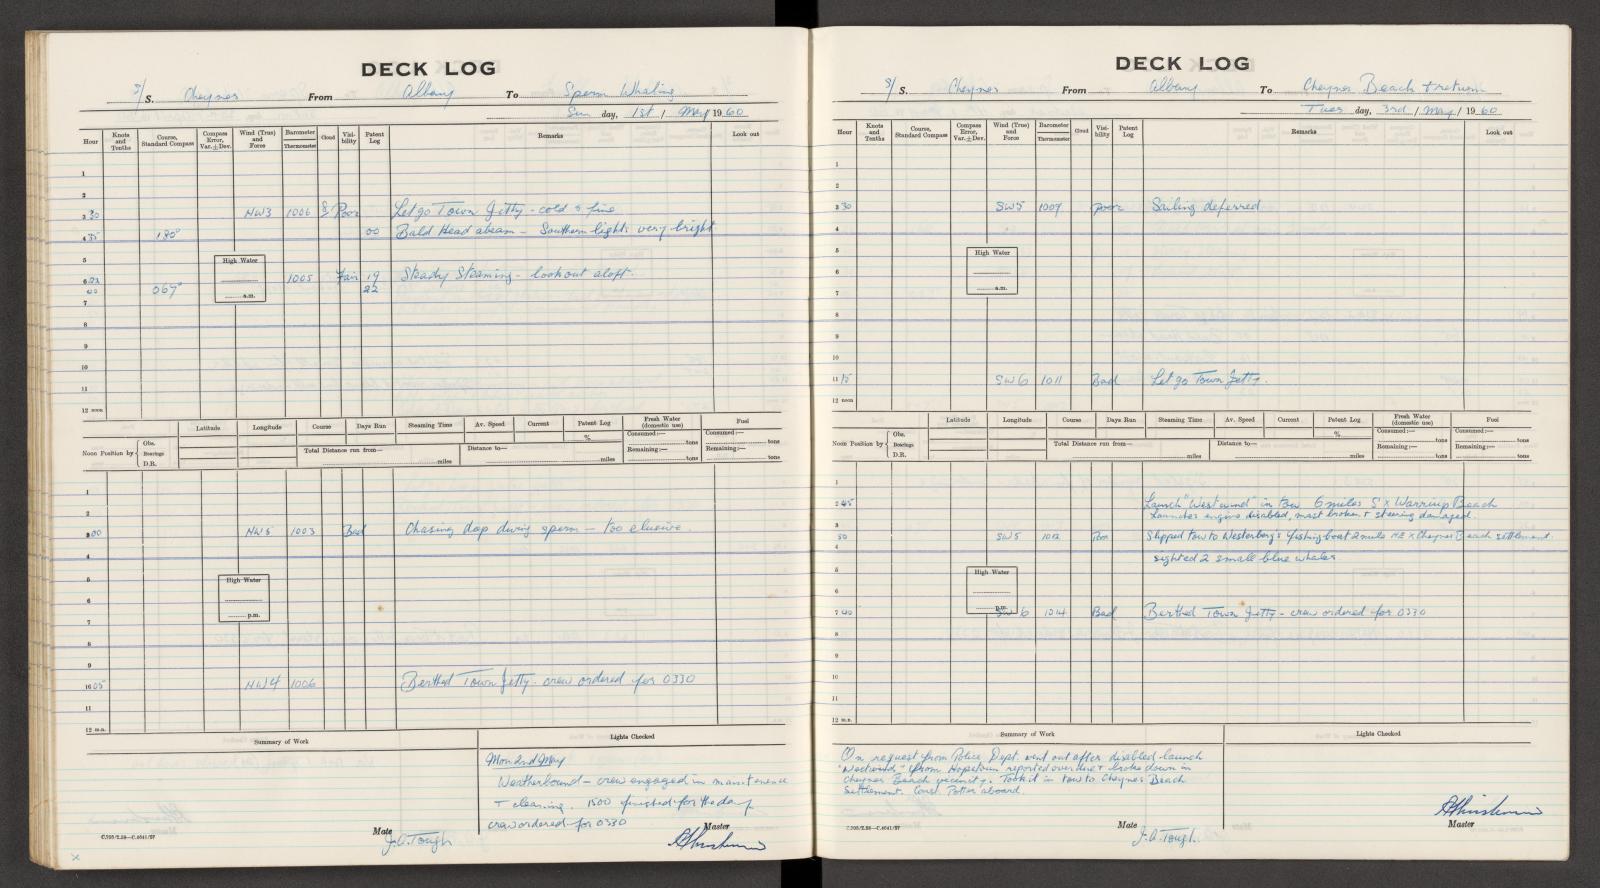 DECK LOG
S/S. Cheynes From Albany To Sperm Whaling
Sun day, 1st / May 19 60
Hour Knots and Tenths Course, Standard Compass Compass Error, Var. ± Dev. Wind (True) and Force Barometer Thermometer Cloud Visibility Patent Log Remarks Look out
1
2
3 30 NW3 1006 Poor Let go Town Jetty - cold & fine
4 35 180° 00 Bald Head abeam - Southern lights very bright
5
High Water
6 1005 Fair 19 Steady Steaming - lookout aloft.
00 067° 22
a.m.
7
8
9
10
11
12 noon
Latitude Longitude Course Days Run Steaming Time Av. Speed Current Patent Log % Fresh Water (domestic use) Fuel
Noon Position by Obs. Bearings D.R. Total Distance run from— miles Distance to— miles Consumed:— tons Remaining:— tons Consumed:— tons Remaining:— tons
1
2
3 00 NW5 1003 Bad Chasing deep diving sperm - too elusive
4
5
High Water
6
p.m.
7
8
9
10 05 NW4 1006 Berthed Town Jetty - crew ordered for 0330
11
12 m.n.
Summary of Work Lights Checked
Mon 2nd May
Weatherbound - crew engaged in maintenence
+ cleaning. 1500 finished for the day.
crew ordered for 0330
Mate Master
J.A. Tough
C.705/2.59—C.4641/57
DECK LOG
S/S. Cheynes From Albany To Cheynes Beach & return
Tues day, 3rd / May / 19 60
Hour Knots and Tenths Course, Standard Compass Compass Error, Var. ± Dev. Wind (True) and Force Barometer Thermometer Cloud Visibility Patent Log Remarks Look out
1
2
3 30 SW5 1009 poor Sailing deferred
4
5
High Water
6
a.m.
7
8
9
10
11 15 SW6 1011 Bad Let go Town Jetty.
12 noon
Latitude Longitude Course Days Run Steaming Time Av. Speed Current Patent Log % Fresh Water (domestic use) Fuel
Noon Position by Obs. Bearings D.R. Total Distance run from— miles Distance to— miles Consumed:— tons Remaining:— tons Consumed:— tons Remaining:— tons
1
2 45 Launch "Westwind" in tow 6 miles S x Warriup Beach
Launches engine disabled, mast broken & steering damaged.
3
50 SW5 1012 Poor Slipped tow to Westerberg's fishing boat 2 mile NE x Cheynes Beach settlement.
4
sighted 2 small blue whales
5
High Water
6
p.m.
7 40 SW 6 1014 Bad Berthed Town Jetty - crew ordered for 0330
8
9
10
11
12 m.n.
Summary of Work Lights Checked
On request from Police Dept. went out after disabled launch
"Westwind" from Hopetoun reported overdue & broke down in
Cheynes Beach vicinity. Took it in tow to Cheynes Beach
Settlement. Const. Potter aboard.
Mate Master
J.A. Tough.
C.705/2.59—C.4641/57